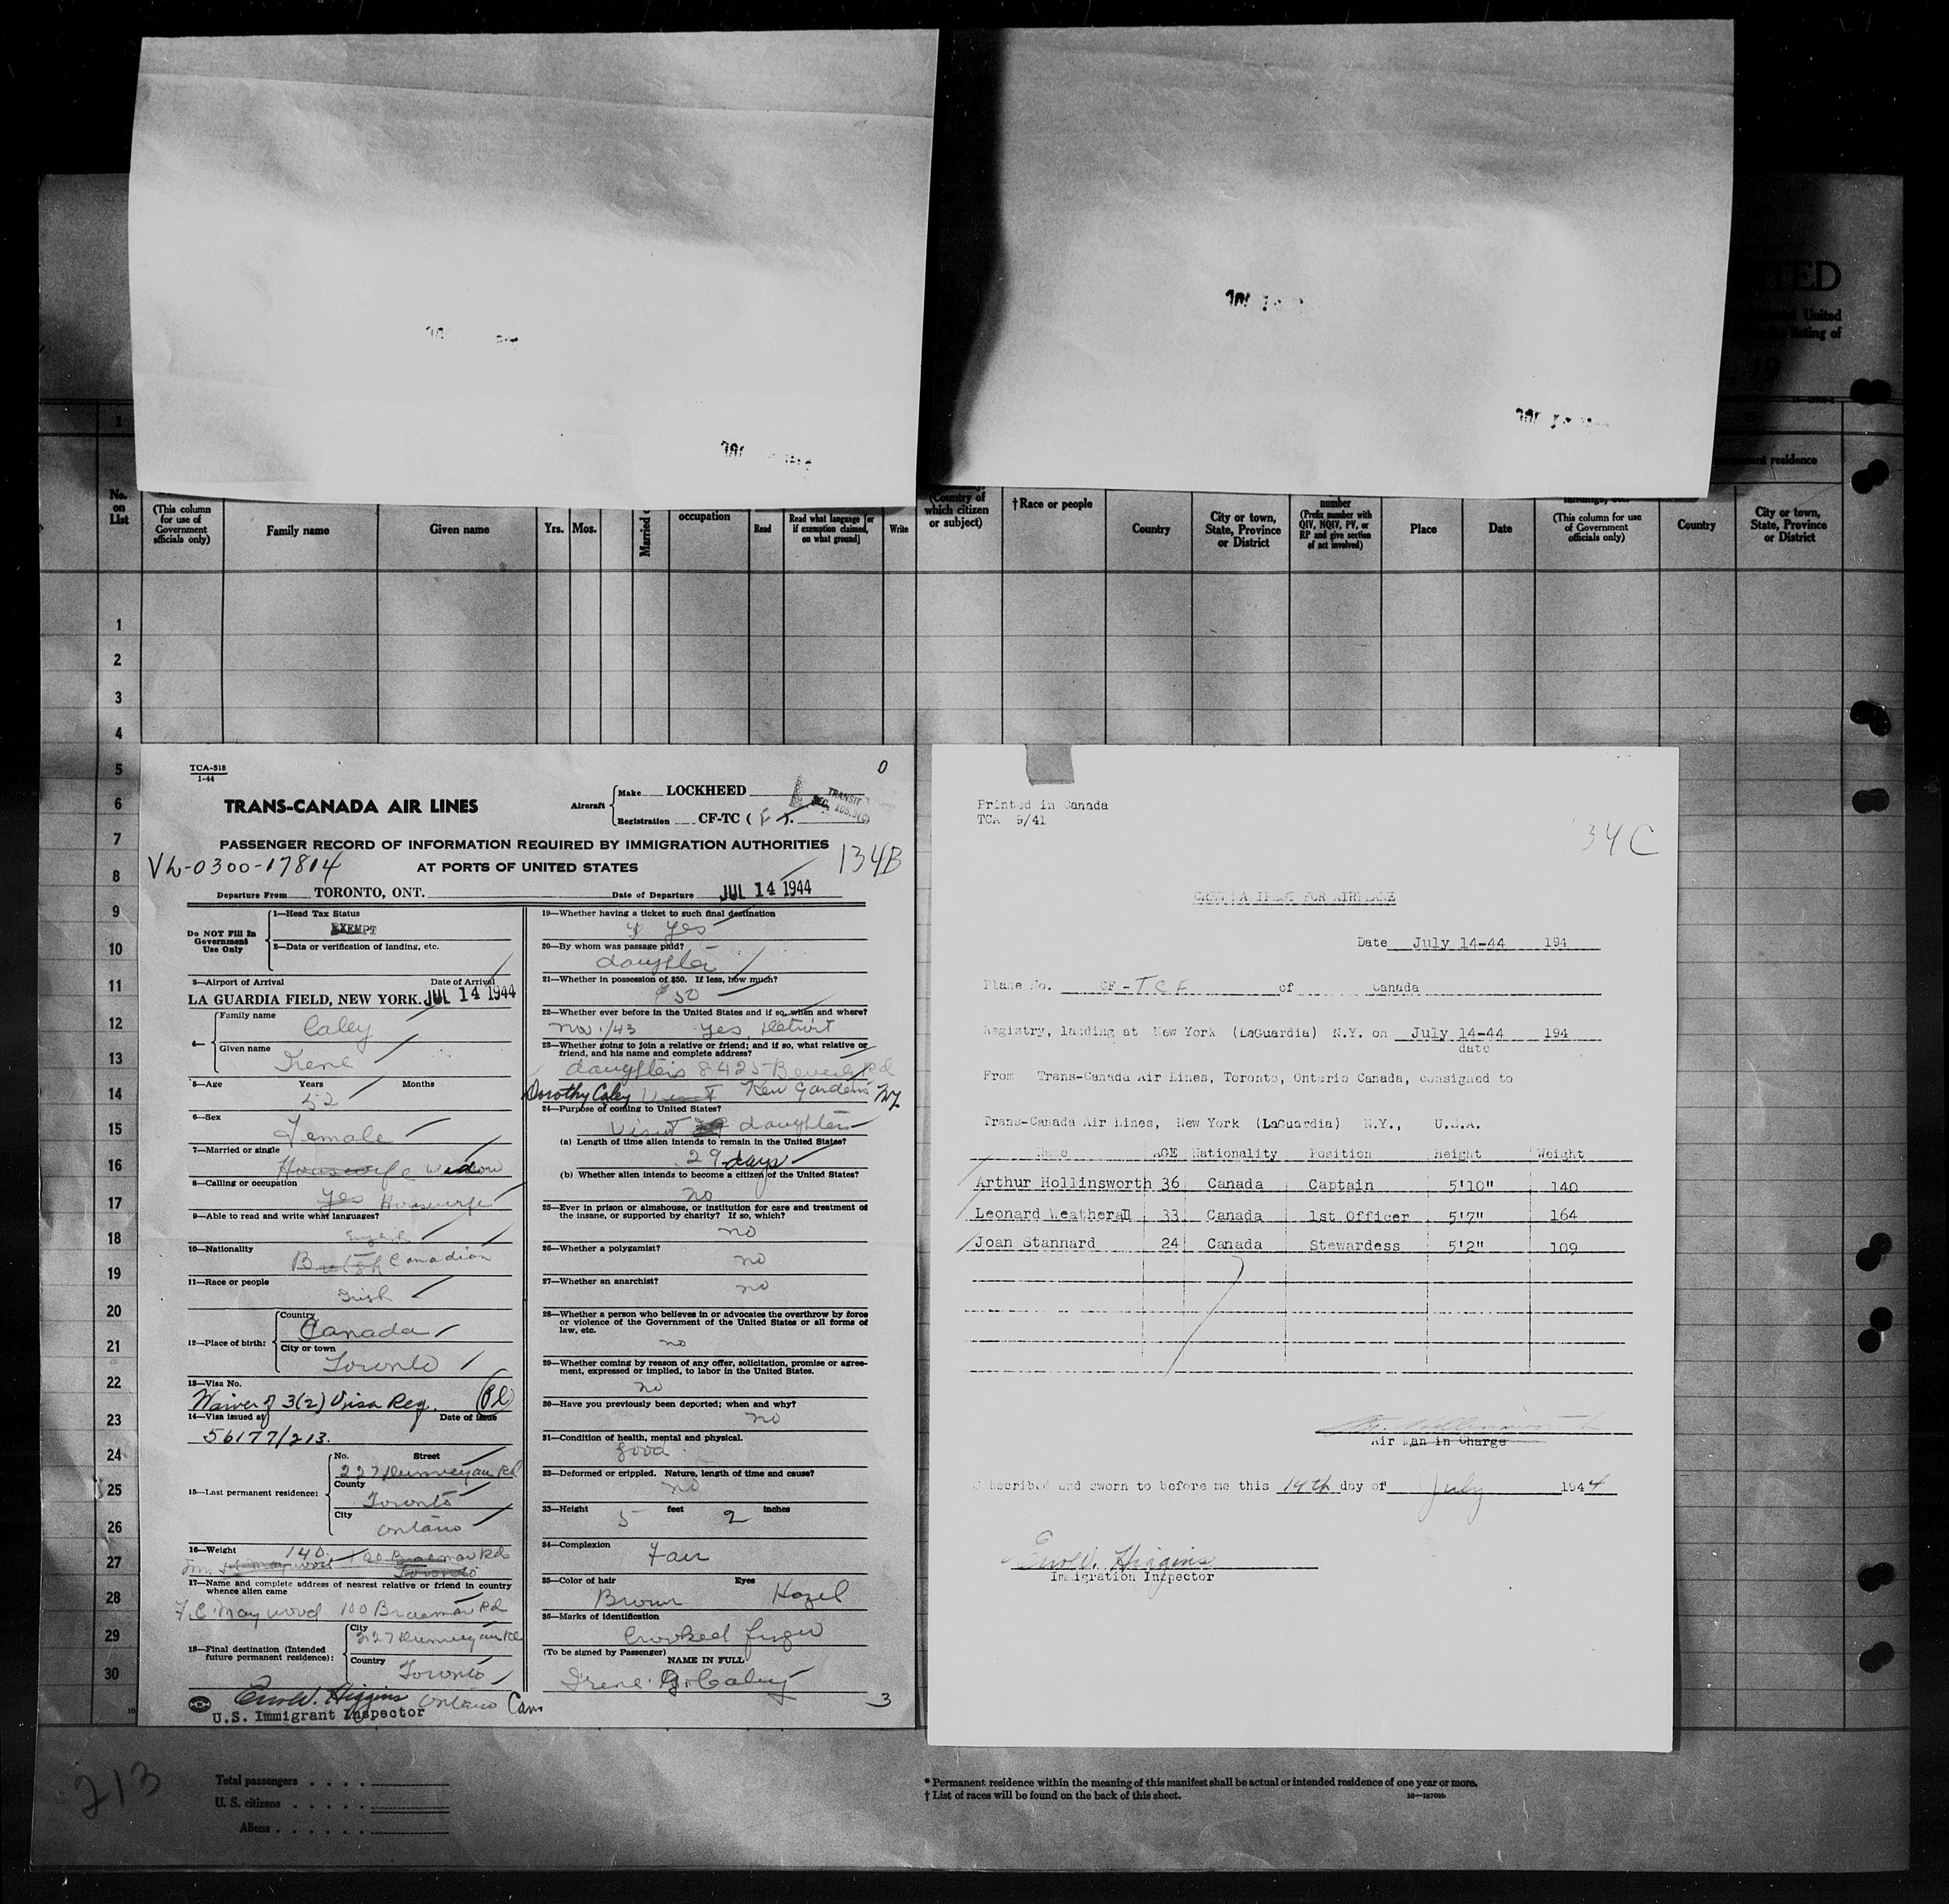 TED
United
listing of
19
1
residence
No.
on
List
(This column
for use of
Government
officials only)
Family name
Given name
Yrs.
Mos.
Married
occupation
Read
Read what language [or
if exemption claimed,
on what ground]
Write
(Country of
which citizen
or subject)
†Race or people
Country
City or town,
State, Province
or District
number
(Prefix number with
QIV, NQIV, PV, or
RP and give section
of act involved)
Place
Date
(This column for use
of Government
officials only)
Country
City or town,
State, Province
or District
1
2
3
4
5
6
7
8
9
10
11
12
13
14
15
16
17
18
19
20
21
22
23
24
25
26
27
28
29
30
TCA-518
1-44
0
TRANS-CANADA AIR LINES
Aircraft
Make LOCKHEED
Registration CF-TC ( F ).
TRANSIT
PASSENGER RECORD OF INFORMATION REQUIRED BY IMMIGRATION AUTHORITIES
AT PORTS OF UNITED STATES
Vh-0300-17814
134B
Departure From TORONTO, ONT. Date of Departure JUL 14 1944
Do NOT Fill In
Government
Use Only
1—Head Tax Status
EXEMPT
2—Data or verification of landing, etc.
3—Airport of Arrival Date of Arrival
LA GUARDIA FIELD, NEW YORK. JUL 14 1944
4—
Family name
Caley
Given name
Irene
5—Age Years Months
52
6—Sex
Female
7—Married or single
Housewife Widow
8—Calling or occupation
yes Housewife
9—Able to read and write what languages?
English
10—Nationality
British Canadian
11—Race or people
Irish
12—Place of birth:
Country
Canada
City or town
Toronto
13—Visa No.
Waiver of 3(2) Visa Reg.
14—Visa issued at Date of Issue
56177/213.
15—Last permanent residence:
No. Street
227 Dunvegan Rd
County
Toronto
City
Ontario
16—Weight 140 100 Braemar Rd
Toronto
17—Name and complete address of nearest relative or friend in country
whence alien came
F.C. Maywood 100 Braemar Rd
18—Final destination (Intended
future permanent residence):
City
227 Dunvegan Rd
Country
Toronto
Ontario Can
Higgins
U.S. Immigrant Inspector
19—Whether having a ticket to such final destination
yes
20—By whom was passage paid?
daughter
21—Whether in possession of $50. If less, how much?
$50
22—Whether ever before in the United States and if so, when and where?
Nov 1/43 yes, Detroit
23—Whether going to join a relative or friend; and if so, what relative or
friend, and his name and complete address?
daughters 8425 Beverly Rd
Dorothy Caley visit Kew Gardens NY
24—Purpose of coming to United States?
Visit daughters
(a) Length of time alien intends to remain in the United States?
29 days
(b) Whether alien intends to become a citizen of the United States?
no
25—Ever in prison or almshouse, or institution for care and treatment of
the insane, or supported by charity? If so, which?
no
26—Whether a polygamist?
no
27—Whether an anarchist?
no
28—Whether a person who believes in or advocates the overthrow by force
or violence of the Government of the United States or all forms of
law, etc.
no
29—Whether coming by reason of any offer, solicitation, promise or agree-
ment, expressed or implied, to labor in the United States.
no
30—Have you previously been deported; when and why?
no
31—Condition of health, mental and physical.
good
32—Deformed or crippled. Nature, length of time and cause?
no
33—Height 5 feet 2 inches
34—Complexion
Fair
35—Color of hair Eyes
Brown Hazel
36—Marks of identification
Crooked finger
(To be signed by Passenger)
NAME IN FULL
Irene G. Caley
3
Printed in Canada
TCA 9/41
34C
Date July 14-44 194
Plane No. CF-TCF of Canada
Registry, landing at New York (LaGuardia) N.Y. on July 14-44 194
date
From Trans-Canada Air Lines, Toronto, Ontario Canada, consigned to
Trans-Canada Air Lines, New York (LaGuardia) N.Y., U.S.A.
Name AGE Nationality Position Height Weight
Arthur Hollinsworth 36 Canada Captain 5'10" 140
Leonard Weatherall 33 Canada 1st Officer 5'7" 164
Joan Stannard 24 Canada Stewardess 5'2" 109
Air Man in Charge
Subscribed and sworn to before me this 14th day of July 1944
Higgins
Immigration Inspector
213
Total passengers
U. S. citizens
Aliens
* Permanent residence within the meaning of this manifest shall be actual or intended residence of one year or more.
† List of races will be found on the back of this sheet.